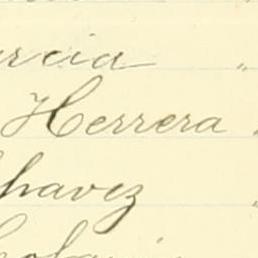 arcia "
Herrera "
Chavez "